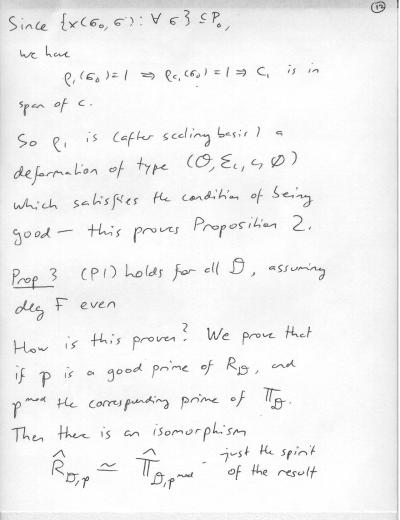 12
Since {x(σ₀, σ): ∀ σ} ⊆ P₀,
we have
ρ₁(σ₀)=1 ⇒ ρ_{c₁}(σ₀)=1 ⇒ c₁ is in
span of c.
So ρ₁ is (after scaling basis) a
deformation of type (O, Σ_c, c, ∅)
which satisfies the condition of being
good — this proves Proposition 2.
Prop 3 (P1) holds for all D, assuming
deg F even
How is this proven? We prove that
if p is a good prime of R_D, and
p^mod the corresponding prime of 𝕋_D.
Then there is an isomorphism
R̂_{D,p} ≃ 𝕋̂_{D,p^mod} - just the spirit
of the result